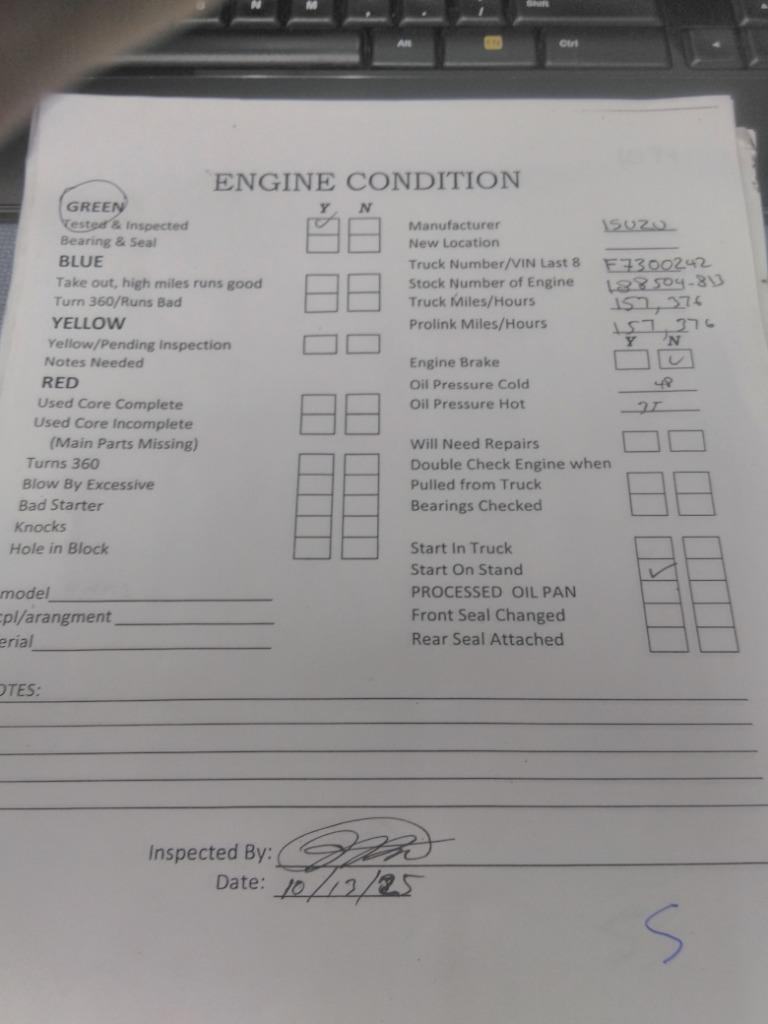 N M , . / Shift
Alt Fn Ctrl
ENGINE CONDITION
GREEN
Y N
Tested & Inspected
Bearing & Seal
BLUE
Take out, high miles runs good
Turn 360/Runs Bad
YELLOW
Yellow/Pending Inspection
Notes Needed
RED
Used Core Complete
Used Core Incomplete
(Main Parts Missing)
Turns 360
Blow By Excessive
Bad Starter
Knocks
Hole in Block
model
cpl/arangment
erial
Manufacturer ISUZU
New Location
Truck Number/VIN Last 8 F7300242
Stock Number of Engine 188504-813
Truck Miles/Hours 157,376
Prolink Miles/Hours 157,376
Y N
Engine Brake
Oil Pressure Cold 48
Oil Pressure Hot
Will Need Repairs
Double Check Engine when
Pulled from Truck
Bearings Checked
Start In Truck
Start On Stand
PROCESSED OIL PAN
Front Seal Changed
Rear Seal Attached
OTES:
Inspected By:
Date: 10/13/25
S